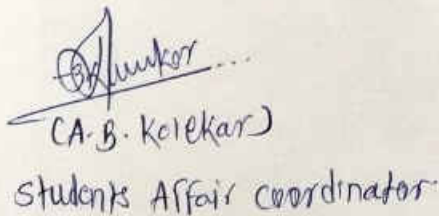 (A.B. Kolekar)
Students Affair Coordinator